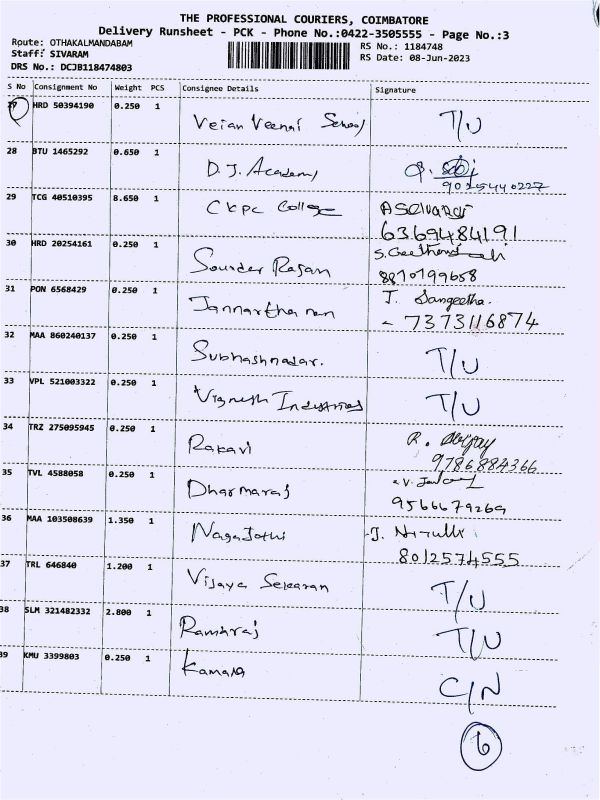 THE PROFESSIONAL COURIERS, COIMBATORE
Delivery Runsheet - PCK - Phone No.:0422-3505555 - Page No.:3
Route: OTHAKALMANDABAM
RS No.: 1184748
Staff: SIVARAM
RS Date: 08-Jun-2023
DRS No.: DCJB118474803
S No Consignment No Weight PCS Consignee Details Signature
27 HRD 50394190 0.250 1 School T/U
28 BTU 1465292 0.650 1 D.J. Academy
9025440227
29 TCG 40510395 8.650 1 CKPC College A Selvaraj
6369484191
30 HRD 20254161 0.250 1 Sounder Rajan
8870199658
31 PON 6568429 0.250 1 Jannarthanan J. Sangeetha.
- 7373116874
32 MAA 860240137 0.250 1 Subhashnadar. T/U
33 VPL 521003322 0.250 1 Vignesh Industries T/U
34 TRZ 275095945 0.250 1 Rakavi R.
9786884366
35 TVL 4588058 0.250 1 Dharmaraj
9566679269
36 MAA 103508639 1.350 1 NagaJothi
8012574555
37 TRL 646840 1.200 1 Vijaya Sekaran T/U
38 SLM 321482332 2.800 1 Ramaraj T/U
39 KMU 3399803 0.250 1 Kamala C/N
6